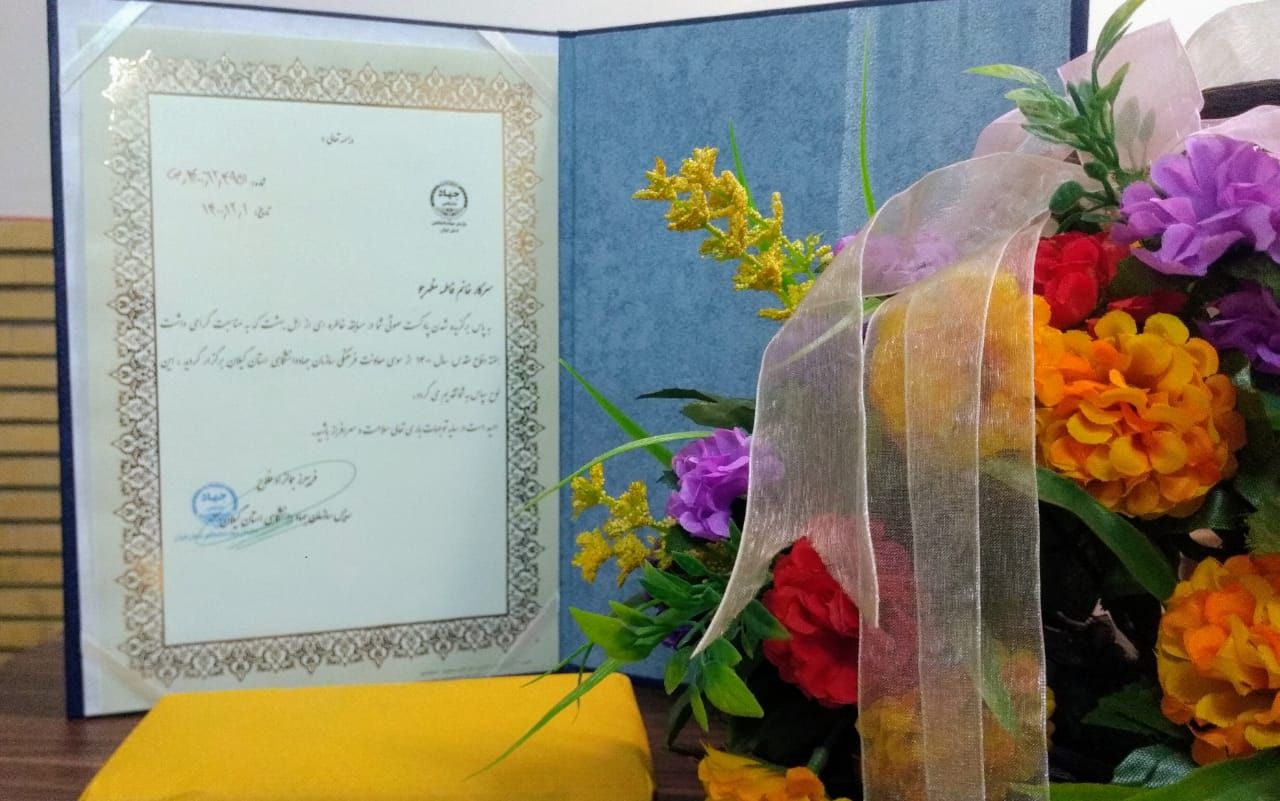 « بسمه تعالی »
شماره:
تاریخ: ۱۴۰۰/۱۲/۱
جهاد
سرکار خانم فاطمه مظهرجو
به پاس برگزیده شدن پادکست صوتی شما در مسابقه خاطره ای از اهل بهشت که به مناسبت گرامی داشت
هفته دفاع مقدس سال ۱۴۰۰ از سوی معاونت فرهنگی سازمان جهاددانشگاهی استان گیلان برگزار گردید ، این
لوح سپاس به شما تقدیم می گردد.
امید است در سایه توجهات باری تعالی سلامت و سرافراز باشید.
جهاد
رئیس سازمان جهاد دانشگاهی استان گیلان